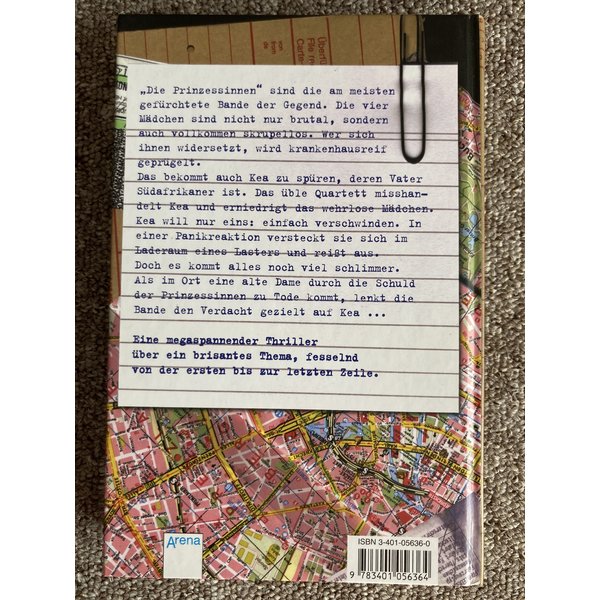 Überfü
File re
Carte
von
from
de
„Die Prinzessinnen“ sind die am meisten
gefürchtete Bande der Gegend. Die vier
Mädchen sind nicht nur brutal, sondern
auch vollkommen skrupellos. Wer sich
ihnen widersetzt, wird krankenhausreif
geprügelt.
Das bekommt auch Kea zu spüren, deren Vater
Südafrikaner ist. Das üble Quartett misshan-
delt Kea und erniedrigt das wehrlose Mädchen.
Kea will nur eins: einfach verschwinden. In
einer Panikreaktion versteckt sie sich im
Laderaum eines Lasters und reißt aus.
Doch es kommt alles noch viel schlimmer.
Als im Ort eine alte Dame durch die Schuld
der Prinzessinnen zu Tode kommt, lenkt die
Bande den Verdacht gezielt auf Kea ...
Eine megaspannender Thriller
über ein brisantes Thema, fesselnd
von der ersten bis zur letzten Zeile.
Arena
ISBN 3-401-05636-0
9 783401 056364